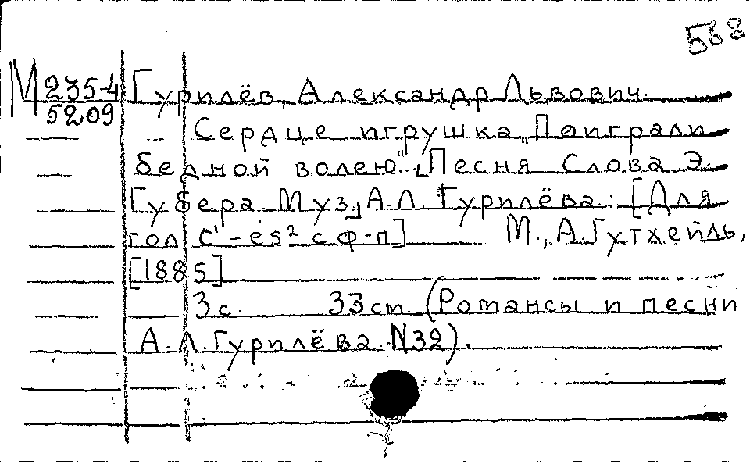 568
М 235-4 Гурилёв, Александр Львович.
52.09
Сердце игрушка „Поиграли
бедной волею". Песня Слова Э.
Губера Муз. А.Л. Гурилёва. [Для
гол. c¹-es² с ф-п]. М., А. Гутхейль,
[1885]
3 с. 33 см (Романсы и песни
А.Л. Гурилёва. N32).